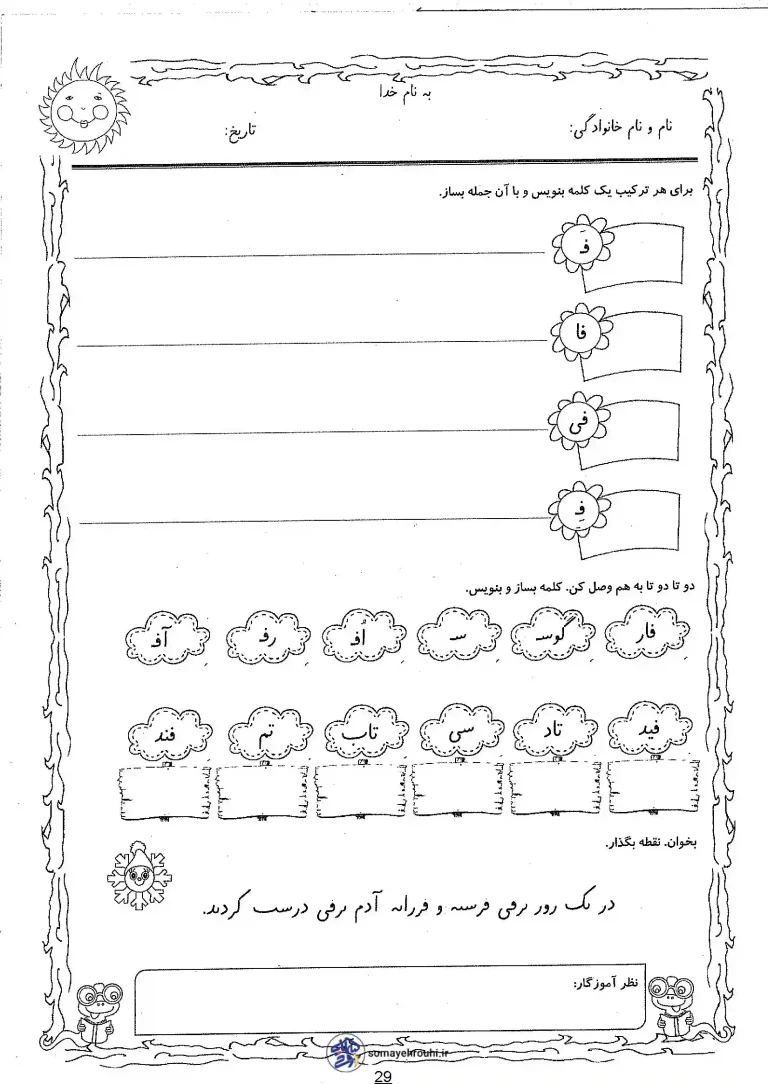 به نام خدا
نام و نام خانوادگی: تاریخ:
برای هر ترکیب یک کلمه بنویس و با آن جمله بساز.
فَـ
فا
فی
فِـ
دو تا دو تا به هم وصل کن. کلمه بساز و بنویس.
فار گوسـ سـ اُفـ رفـ آفـ
فید تاد سی تاب تم فند
بخوان. نقطه بگذار.
در ٮک رور ٮرفی فرسٮه و فرراٮه آدم ٮرفی درسٮ کردٮد.
نظر آموزگار:
somayehrouhi.ir
29